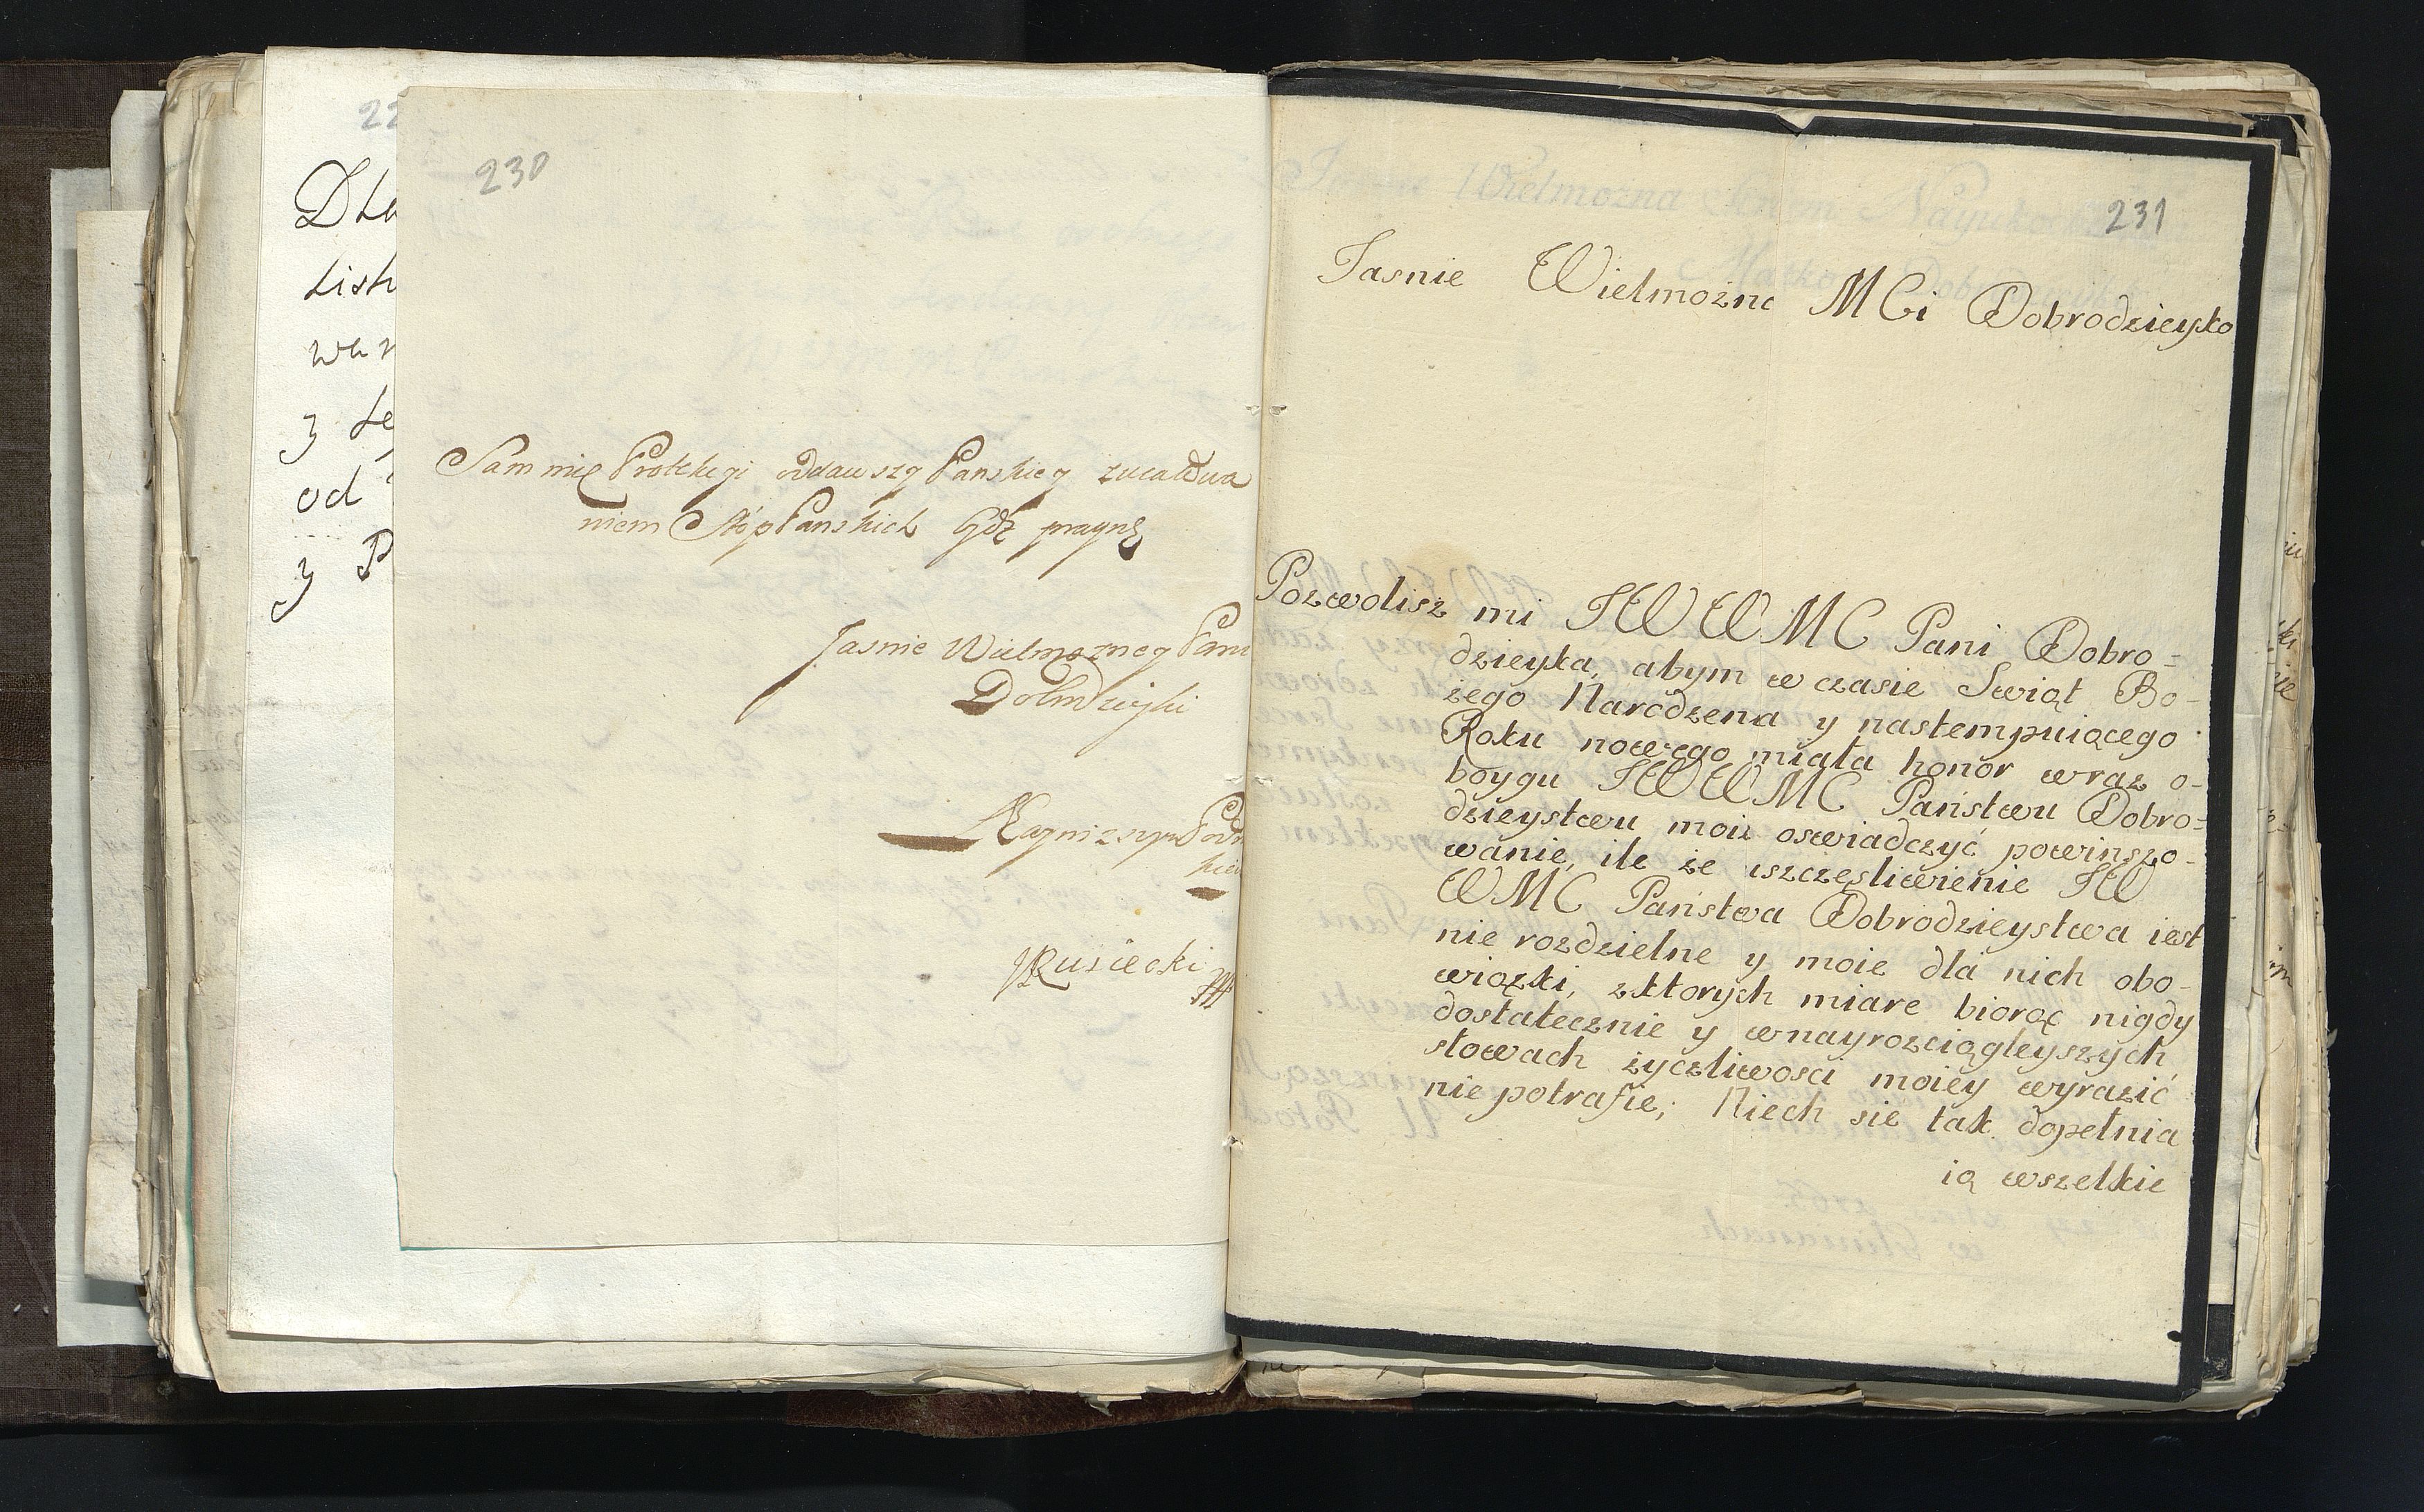 22
Dla
list
war
z
od
z P
230
Sam mię Protekcyi oddawszy Panskiey zucałowa
niem Stóp Panskich gdź pragnę
Jasnie Wielmozney Pani
Dobrodzieyki
Naynizszym Pod
Rusiecki
231
Jasnie Wielmożna MCi Dobrodzieyko
Pozwolisz mi JWWMC Pani Dobro=
dzieyka, abym w czasie Swiąt Bo-
żego Narodzena y nastempuiącego
Roku nowego miała honor wraz o-
boygu JWWMC Państwu Dobro=
dzieystwu moie oswiadczyć powinszo-
wanie, ile że uszczęsliwienie JW
WMC Państwa Dobrodzieystwa iest
nie rozdzielne y moie dla nich obo-
wiązki, zktorych miare biorąc nigdy
dostatecznie y wnayrozciągleyszych
słowach życzliwosci moiey wyrazić
nie potrafie; Niech sie tak dopełnia
ią wszelkie